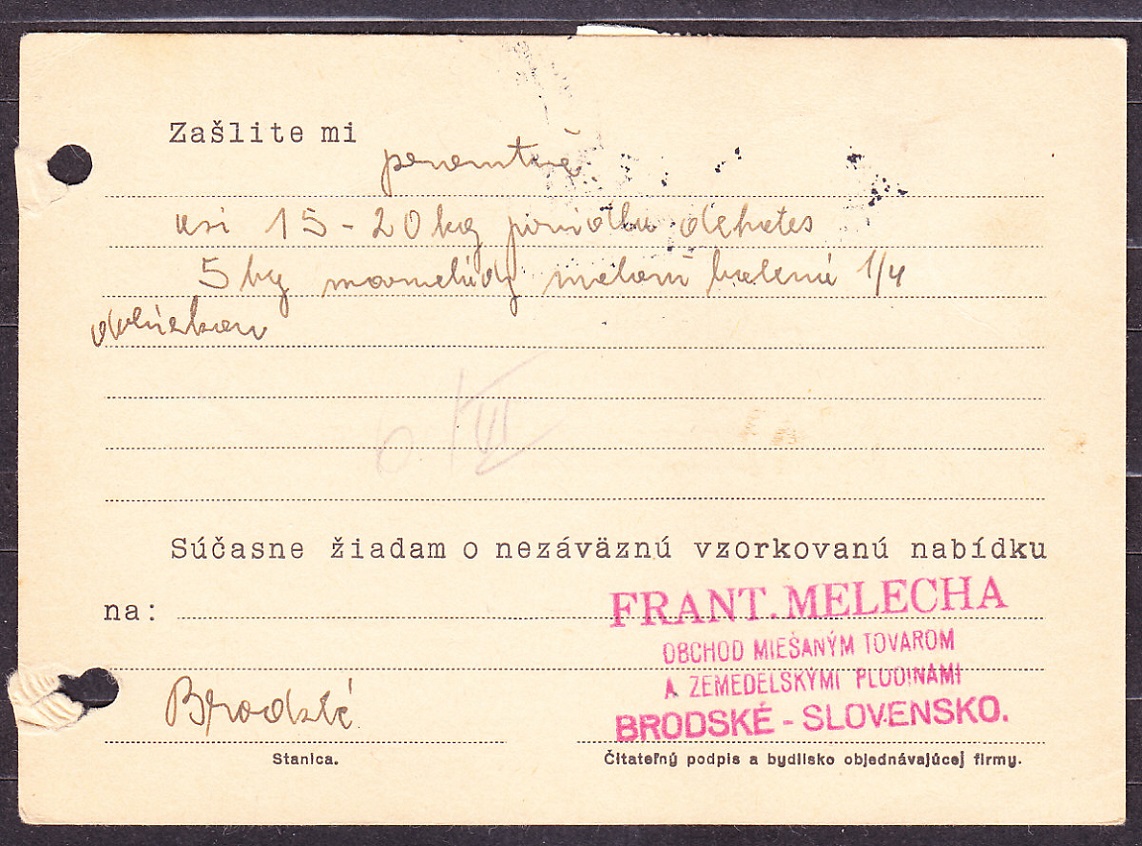 Zašlite mi
asi 15-20 kg
5 kg 1/4
6. VII
Súčasne žiadam o nezáväznú vzorkovanú nabídku
na:
FRANT. MELECHA
OBCHOD MIEŠANÝM TOVAROM
A ZEMEDELSKÝMI PLODINAMI
BRODSKÉ - SLOVENSKO.
Brodské
Stanica.
Čitateľný podpis a bydlisko objednávajúcej firmy.